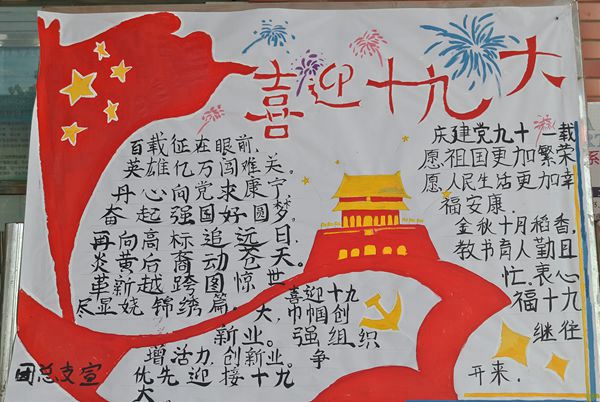 喜迎十九大
百载征途眼前，
英雄亿万闯难关。
丹心向党求康宁
奋起强国好圆梦。
再向高标追远日
炎黄后裔动苍天
革新越跨惊世
尽显娆锦绣篇。
喜迎十九大，
巾帼创新业。
强组织增活力，
创新业。争优
先迎接十九大。
团总支宣
庆建党九十一载
愿祖国更加繁荣
愿人民生活更加幸
福安康
金秋十月稻香，
教书育人勤且
忙。衷心
福十九
继往
开来，